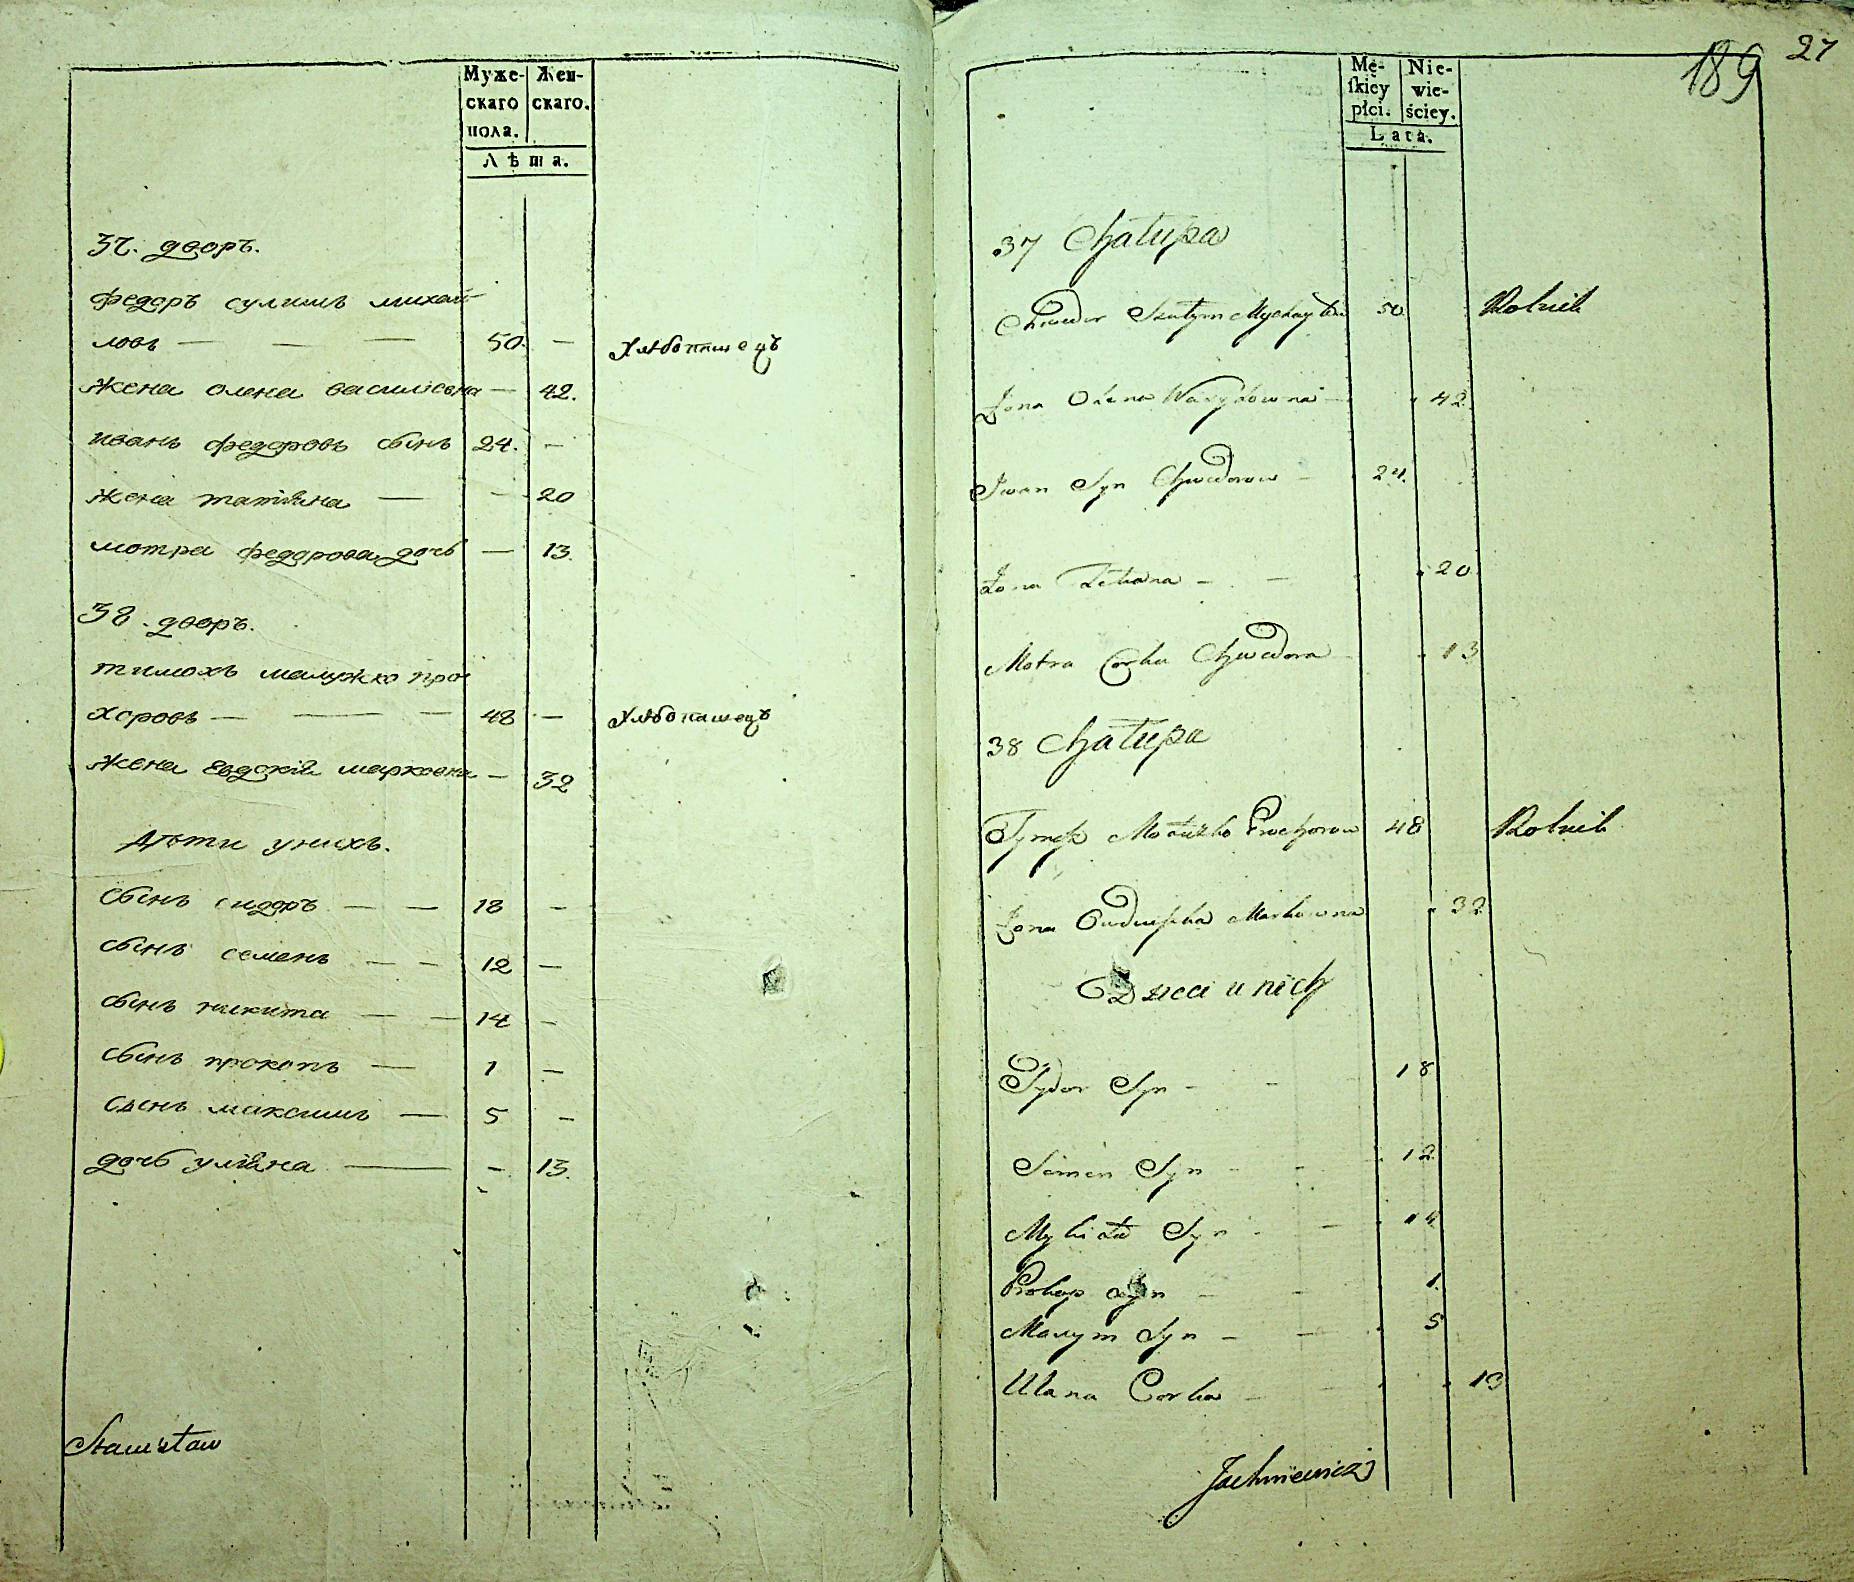 Муже-
скаго
пола.
Жен-
скаго.
Лѣта.
37. дворъ.
федоръ сулимъ михай-
ловъ — — — 50. —
Хлѣбопашецъ
жена олена василіевна — 42.
иванъ федоровъ сынъ 24. —
жена татіяна — — 20
мотра федорова дочь — 13.
38. дворъ.
тимохъ малужко про
хоровъ — — — 48 —
Хлѣбопашецъ
жена Евдокія марковна — 32
Дѣти унихъ.
сынъ сидоръ — — 18 —
сынъ семенъ — — 12 —
сынъ никита — — 14 —
сынъ прокопъ — 1 —
сынъ максимъ — 5 —
дочь уліяна — — 13.
Stanisław
189
27
Mę-
ſkiey
płci.
Nie-
wie-
ściey.
Lata.
37 Chałupa
Chwedor Mychayłow 50
Rolnik
Żona Olena Wasylowna — 42
Iwan Syn Chwedorow — 24.
Żona Tetiana — — 20
Motra Corka Chwedora — 13
38 Chałupa
Tymoh Prochorow 48
Rolnik
Żona Markowna 32
Dzieci u nich
Sydor Syn — — 18
Semen Syn — — 12
Mykita Syn — — 14
Prokop Syn — — 1.
Maxym Syn — — 5
Ulana Corka — 13
Jachniewicz